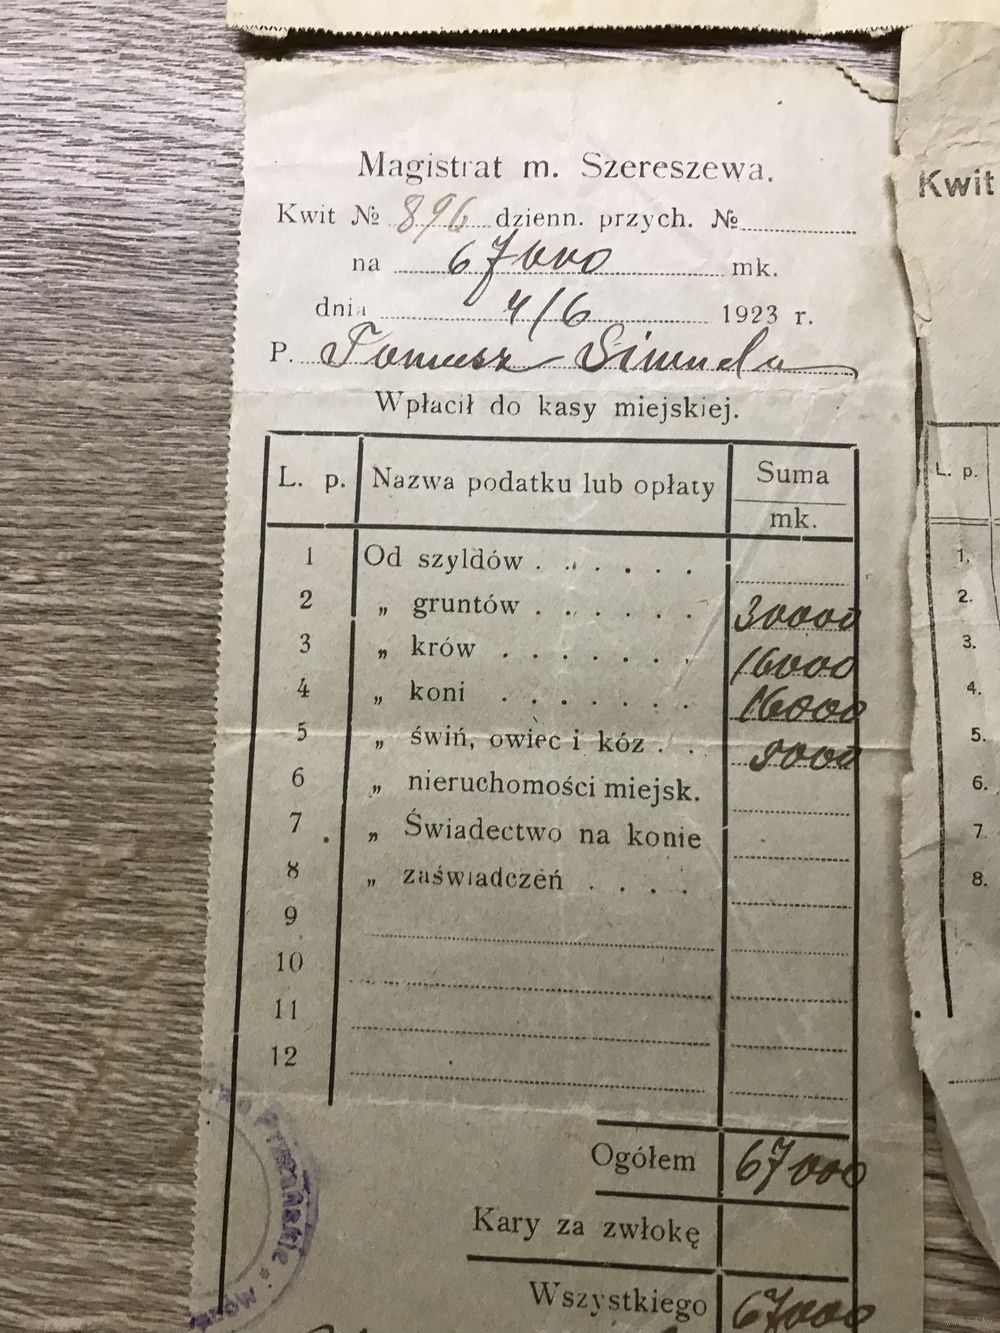 Magistrat m. Szereszewa.
Kwit № 896 dzienn. przych. №
na 67000 mk.
dnia 4/6 1923 r.
P. Tomasz
Wpłacił do kasy miejskiej.
L. p. Nazwa podatku lub opłaty Suma
mk.
1 Od szyldów
2 „ gruntów 30000
3 „ krów 16000
4 „ koni 16000
5 „ świń, owiec i kóz 5000
6 „ nieruchomości miejsk.
7 „ Świadectwo na konie
8 „ zaświadczeń
9
10
11
12
Ogółem 67000
Kary za zwłokę
Wszystkiego 67000
Prużańskie
Kwit
L. p.
1.
2.
3.
4.
5.
6.
7.
8.